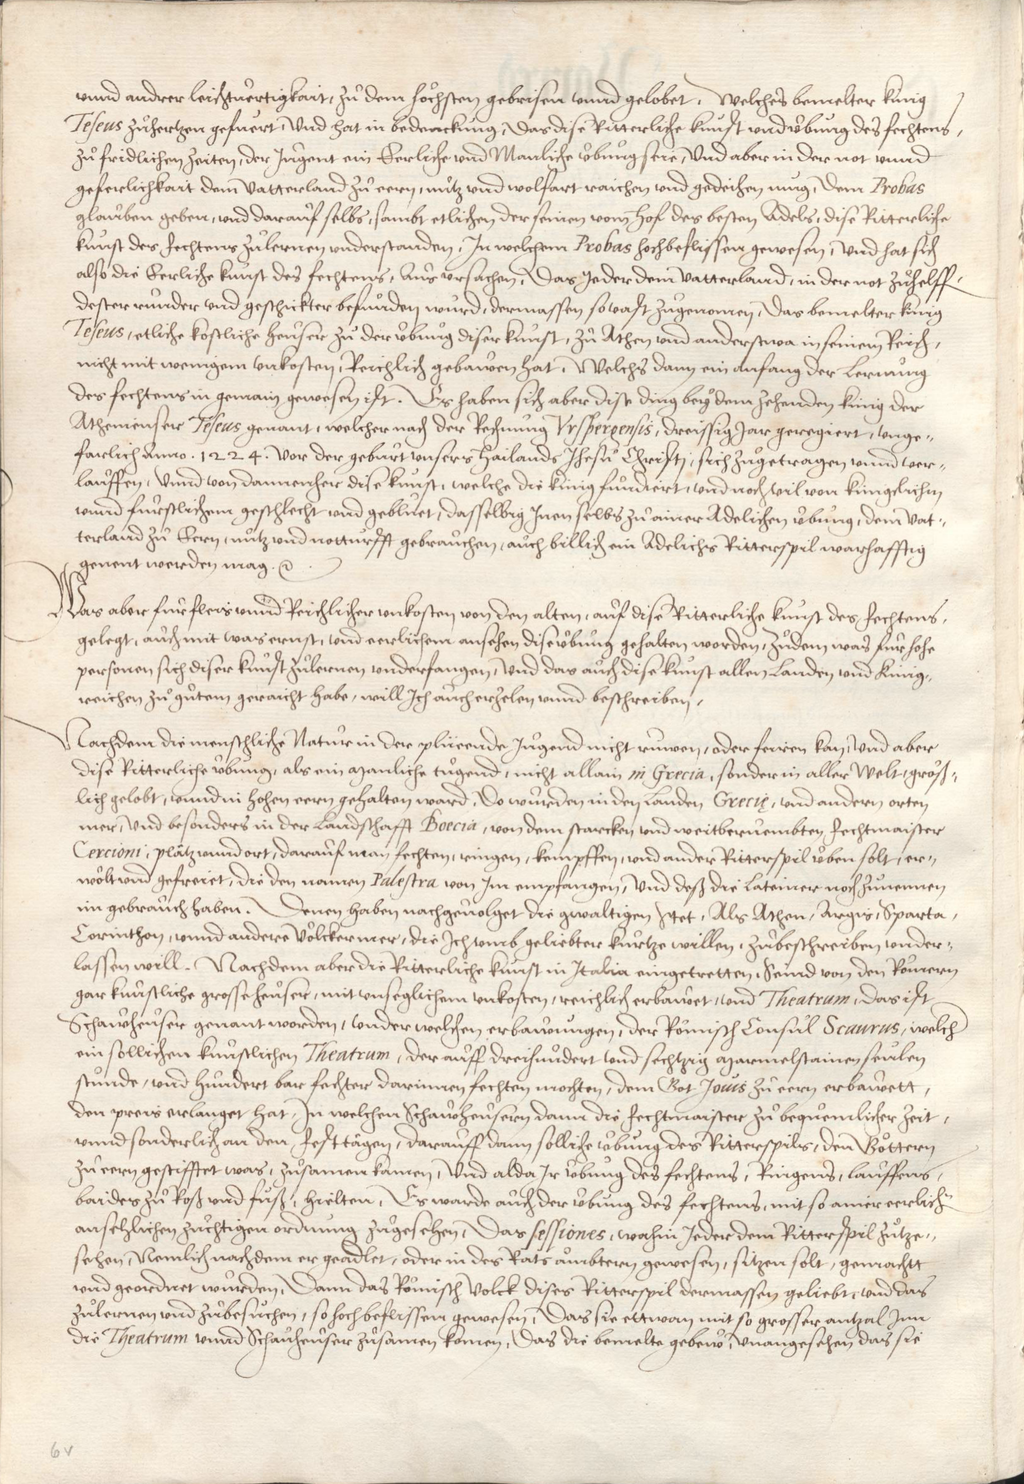 vnnd andrer leichtuertigkait, zů dem höchsten gebrisen vnnd gelobet, Welches bemelter künig
Teseus zůhertzen gefuert, Vnd hat in bedenckung, Das dise Ritterliche kunst vnd vͤbung des fechtens,
zů fridlichen zeiten, der Jugent ein Eerliche vnd Manliche vͤbung seie, Vnd aber in der not vnnd
geferlichkait dem Vatterland zů eern, nutz vnd wolfart raichen vnd gedeihen mug, Dem Probas
glauben geben, vnd darauf selbs, sambt etlichen der seinen vom Hof des besten Adels, dise Ritterliche
kunst des fechtens zůlernen vnderstanden, In welchem Probas hochbeflissen gewesen, Vnd hat sich
also die Eerliche kunst des fechtens, Aus vrsachen, Das Jeder dem Vatterland, in der not zůhelff,
dester runder vnd geschickter befunden wurd, dermassen so vast zůgenomen, Das bemelter kunig
Teseus, etliche kostliche heuser zů der vͤbung diser kunst, zů Athen vnd anderstwa in seinem Reich,
nicht mit wenigem vnkosten, Reichlich gebawen hat, Welchs dann ein anfang der Lernung
des fechtens in gemain gewesen ist. Es haben sich aber dise ding bey dem zehenden künig der
Athenienser Teseus genant, welcher nach der Rechnung Vrspergensis, dreissig Jar geregiert, vnge-
farlich Anno. 1224. vor der gebůrt vnsers Hailands Jhesu Christi, sich zůgetragen vnnd ver-
lauffen, Vnnd von dannenher dise kunst, welche die künig fundiert, vnd noch vil von künglichem
vnnd furstlichem geschlecht vnd gebluet, dasselbig Inen selbs zů ainer Adelichen vͤbung, dem Vat-
terland zů Eern, nutz vnd notturfft gebrauchen, auch billich ein Adelichs Ritterspil warhafftig
genent werden mag.
Was aber fur fleis vnnd Reichlicher vnkosten von den alten, auf dise Ritterliche kunst des fechtens,
gelegt, auch mit was ernst, vnd eerlichem ansehen dise vͤbung gehalten worden, Zůdem was fur hohe
personen sich diser kunst zůlernen vnderfangen, Vnd das auch dise kunst allen Landen vnd Küng-
reichen zů gůtem geraicht habe, will Ich auch erzelen vnnd beschreiben,
Nachdem die menschliche Natur in der plueende Jugend nicht ruwen, oder feiren kan, Vnd aber
dise Ritterliche vͤbung, als ein manliche tugend, nicht allain in Grecia, sonder in aller Welt, gröss-
lich gelobt, vnnd in hohen eern gehalten ward, Do wurden in den Landen Grecię, vnd andern orten
mer, Vnd besonders in der Landschafft Boecia, von dem starcken vnd weitberuembten fechtmaister
Cercioni, plätz vnnd ort, darauf man fechten, ringen, kempffen, vnd ander Ritterspil vͤben solt, er-
wölt vnd gefreiet, die den namen Palestra von Im empfangen, Vnd dess die Lateiner noch zunennen
im gebrauch haben. Denen haben nachgeuolget die gwaltigen Stet, Als Athen, Argis, Sparta,
Corinthon, vnnd andere Völcker mer, die Ich vmb geliebter kurtze willen, zůbeschreiben vnder-
lassen will. Nachdem aber die Ritterliche kunst in Italia eingetretten, Seind von den Römern
gar kunstliche grosse heuser, mit vnseglichem vnkosten, reichlich erbawet, vnd Theatrum, das ist
Schawheuser genant worden, vnder welchen erbawungen, der Römisch Consul Scaurus, welch
ein sollichen kunstlichen Theatrum, der auff dreihundert vnd sechtzig marmelstainen seulen
stunde, vnd hundert bar fechter darinnen fechten mochten, dem Got Jouis zů eern erbawett,
den preis erlanget hat, In welchen Schawheusern dann die fechtmaister zů bequemlicher zeit,
vnnd sonderlich an den festtägen, darauff dann solliche vͤbung des Ritterspils, den Göttern
zů eern gestifftet was, zůsamen kamen, Vnd alda Ir vͤbung des fechtens, Ringens, lauffens,
baiders zů Ross vnd fůss, hielten, Es warde auch der vͤbung des fechtens, mit so ainer eerlich
ansehlichen zuchtigen ordnung zůgesehen, Das sessiones, wahin Jeder dem Ritterspil zůtze-
sehen, Nemlich nachdem er geadlet, oder in des Rats ämbtern gewesen, sitzen solt, gemachtt
vnd geordnet wurden, Dann das Römisch Volck dises Ritterspil dermassen geliebt, vnd das
zůlernen vnd zůbesuchen, so hochbeflissen gewesen, Das sie ettwan mit so grosser antzal Inn
die Theatrum vnnd Schauheuser zůsamen komen, Das die bemelte gebew, vnangesehen das sie
6v